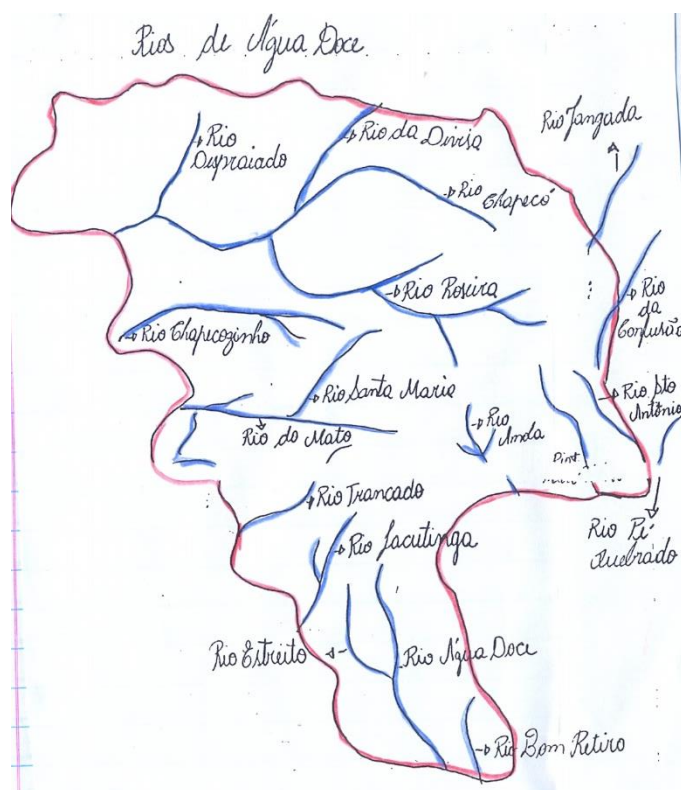 Rios de Água Doce
Rio
Dispraiado
Rio da Divisa
Rio Jangada
Rio
Chapecó
Rio Roseira
Rio
da
Confusão
Rio Chapecozinho
Rio Santa Maria
Rio Sto
Antônio
Rio do Mato
Rio
Anda
Rio Trancado
Rio Jacutinga
Rio Pé
Quebrado
Rio Estreito
Rio Água Doce
Rio Bom Retiro